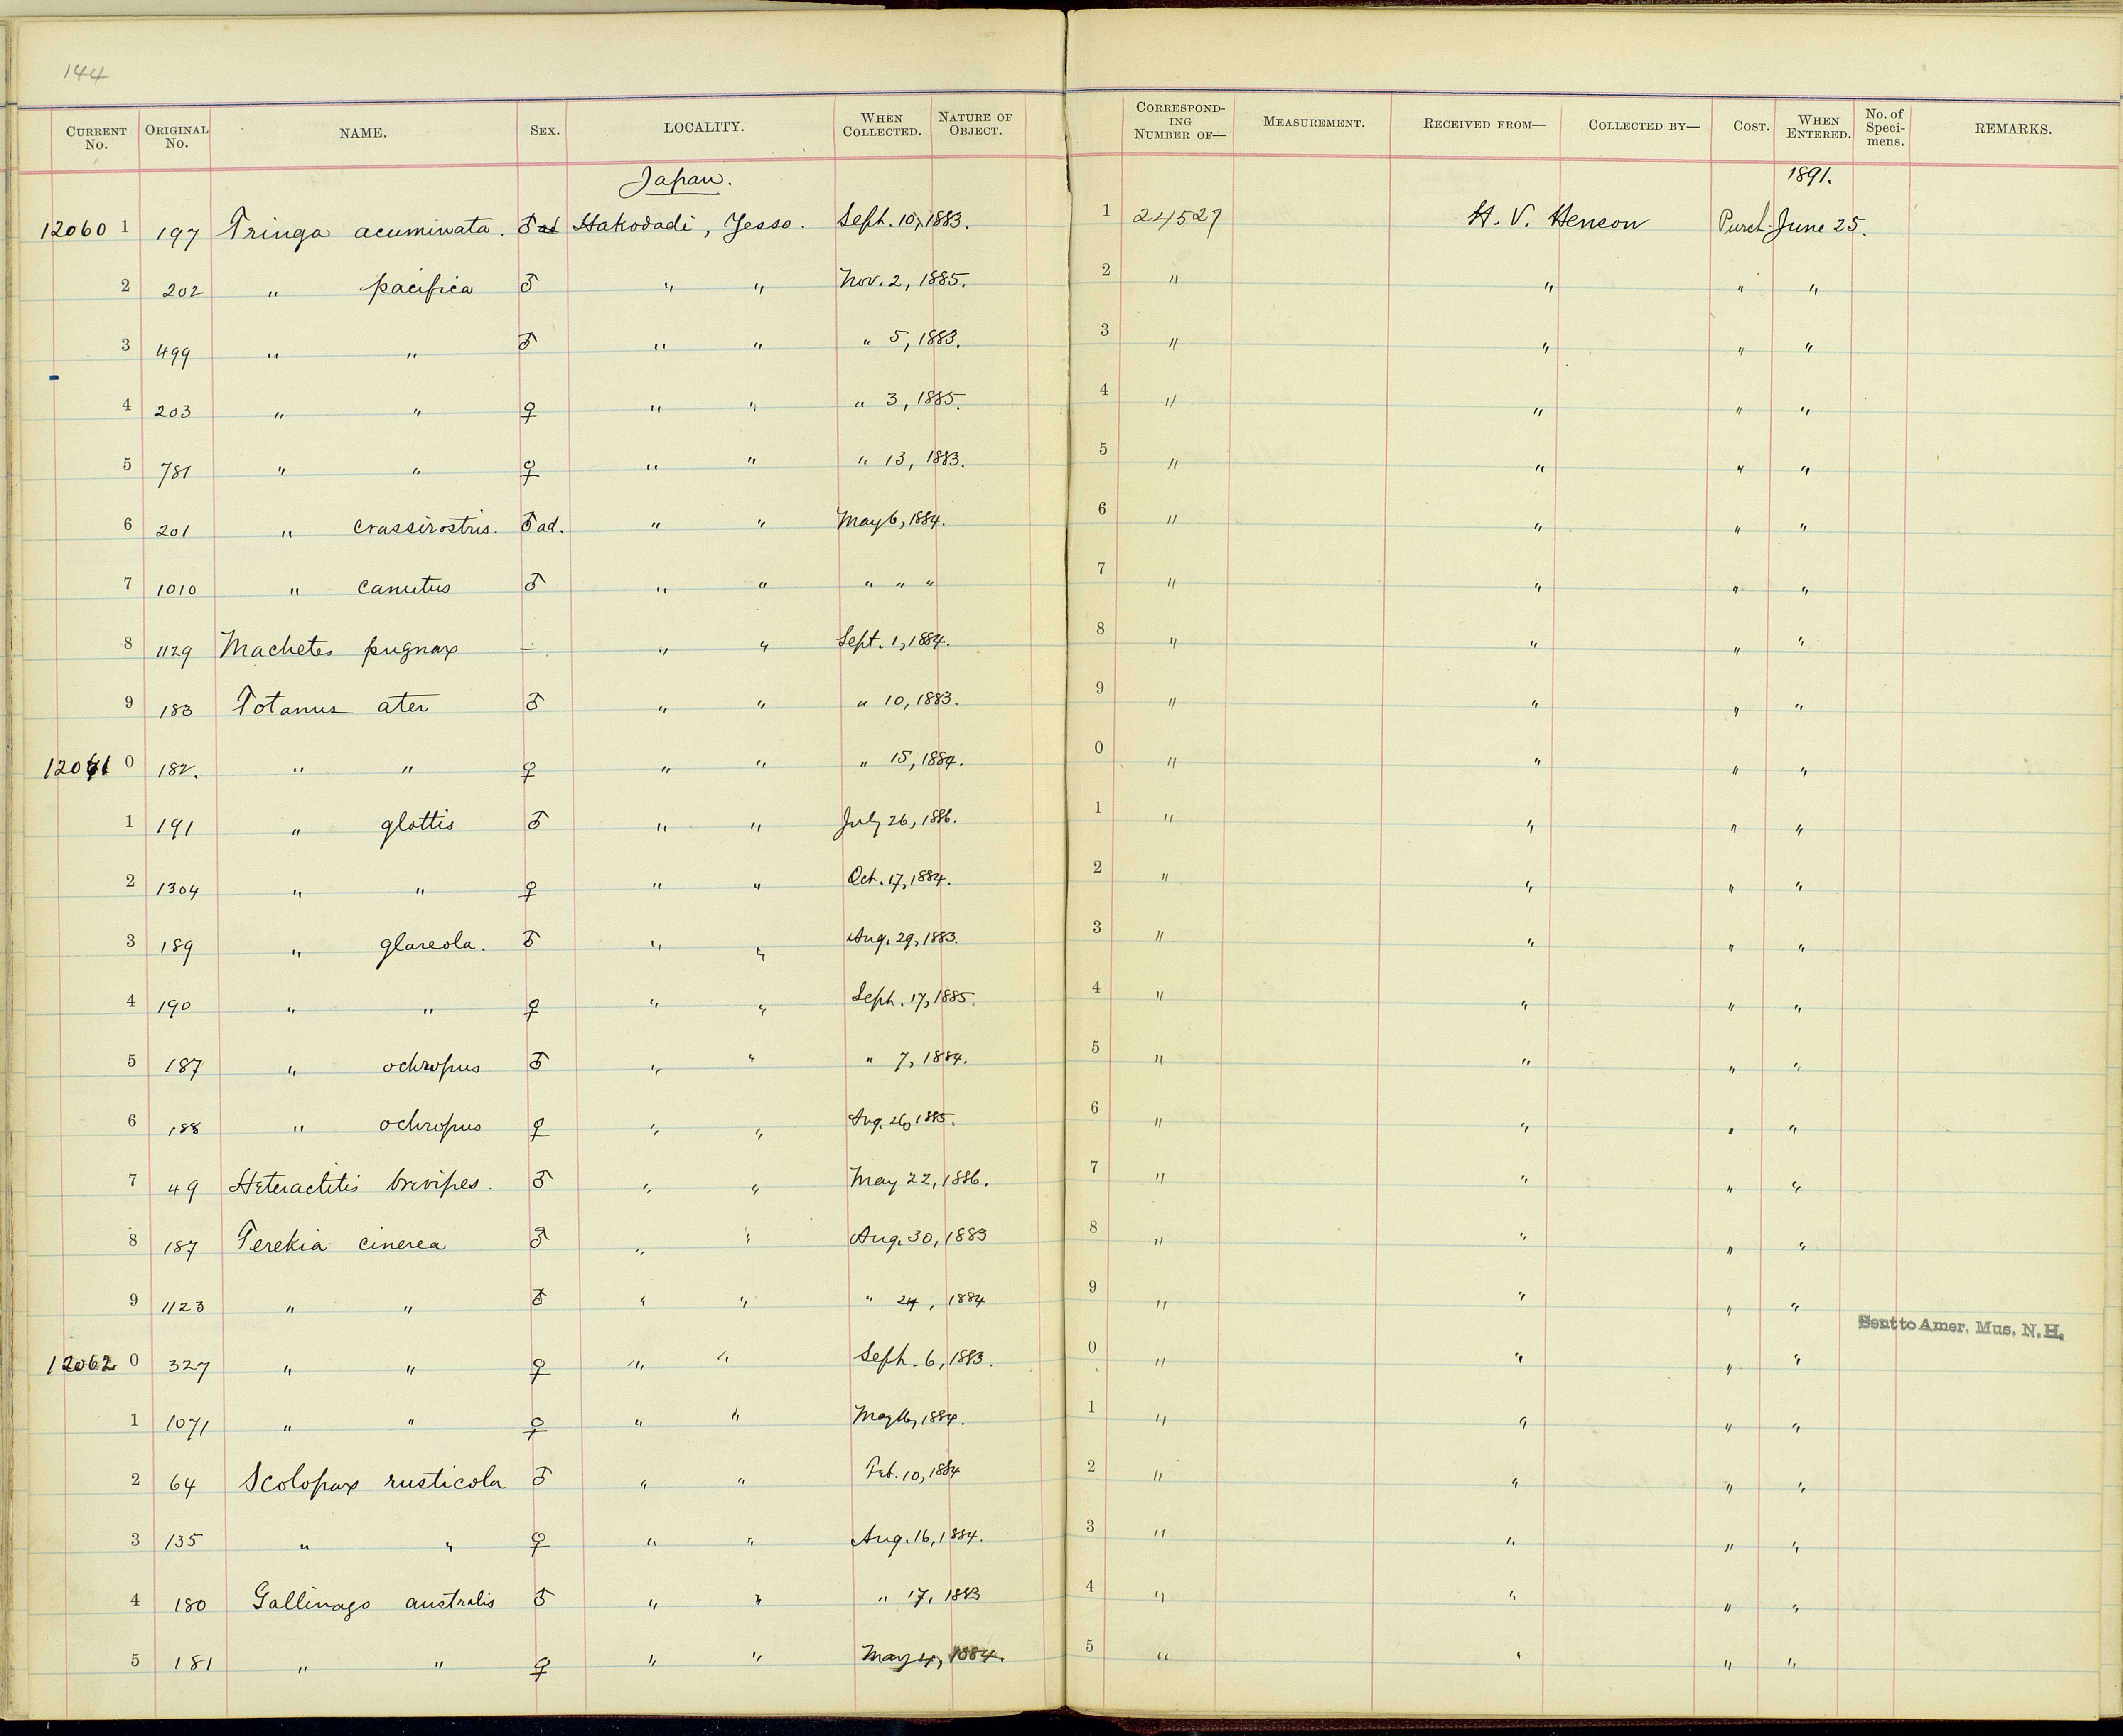 144
CURRENT No. ORIGINAL No. NAME. SEX. LOCALITY. WHEN COLLECTED. NATURE OF OBJECT. CORRESPONDING NUMBER OF— MEASUREMENT. RECEIVED FROM— COLLECTED BY— COST. WHEN ENTERED. No. of Specimens. REMARKS.
Japan. 1891.
12060 1 197 Tringa acuminata. ♂ ad Hakodadi, Yesso. Sept. 10, 1883. 1 24527 H. V. Henson Purch. June 25.
2 202 " pacifica ♂ " " Nov. 2, 1885. 2 " " " "
3 499 " " ♂ " " " 5, 1883. 3 " " " "
4 203 " " ♀ " " " 3, 1885. 4 " " " "
5 781 " " ♀ " " " 13, 1883. 5 " " " "
6 201 " crassirostris. ♂ ad. " " May 6, 1884. 6 " " " "
7 1010 " canutus ♂ " " " " " 7 " " " "
8 1129 Machetes pugnax — " " Sept. 1, 1884. 8 " " " "
9 183 Totanus ater ♂ " " " 10, 1883. 9 " " " "
12061 0 182. " " ♀ " " " 15, 1884. 0 " " " "
1 191 " glottis ♂ " " July 26, 1886. 1 " " " "
2 1304 " " ♀ " " Oct. 17, 1884. 2 " " " "
3 189 " glareola. ♂ " " Aug. 29, 1883. 3 " " " "
4 190 " " ♀ " " Sept. 17, 1885. 4 " " " "
5 187 " ochropus ♂ " " " 7, 1884. 5 " " " "
6 188 " ochropus ♀ " " Aug. 26, 1885. 6 " " " "
7 49 Heteractitis brevipes. ♂ " " May 22, 1886. 7 " " " "
8 187 Terekia cinerea ♂ " " Aug. 30, 1883 8 " " " "
9 1123 " " ♂ " " " 24, 1884 9 " " " "
Sent to Amer. Mus. N. H.
12062 0 327 " " ♀ " " Sept. 6, 1883. 0 " " " "
1 1071 " " ♀ " " May 16, 1884. 1 " " " "
2 64 Scolopax rusticola ♂ " " Feb. 10, 1884 2 " " " "
3 135 " " ♀ " " Aug. 16, 1884. 3 " " " "
4 180 Gallinago australis ♂ " " " 17, 1883 4 " " " "
5 181 " " ♀ " " May 4, 1884. 5 " " " "